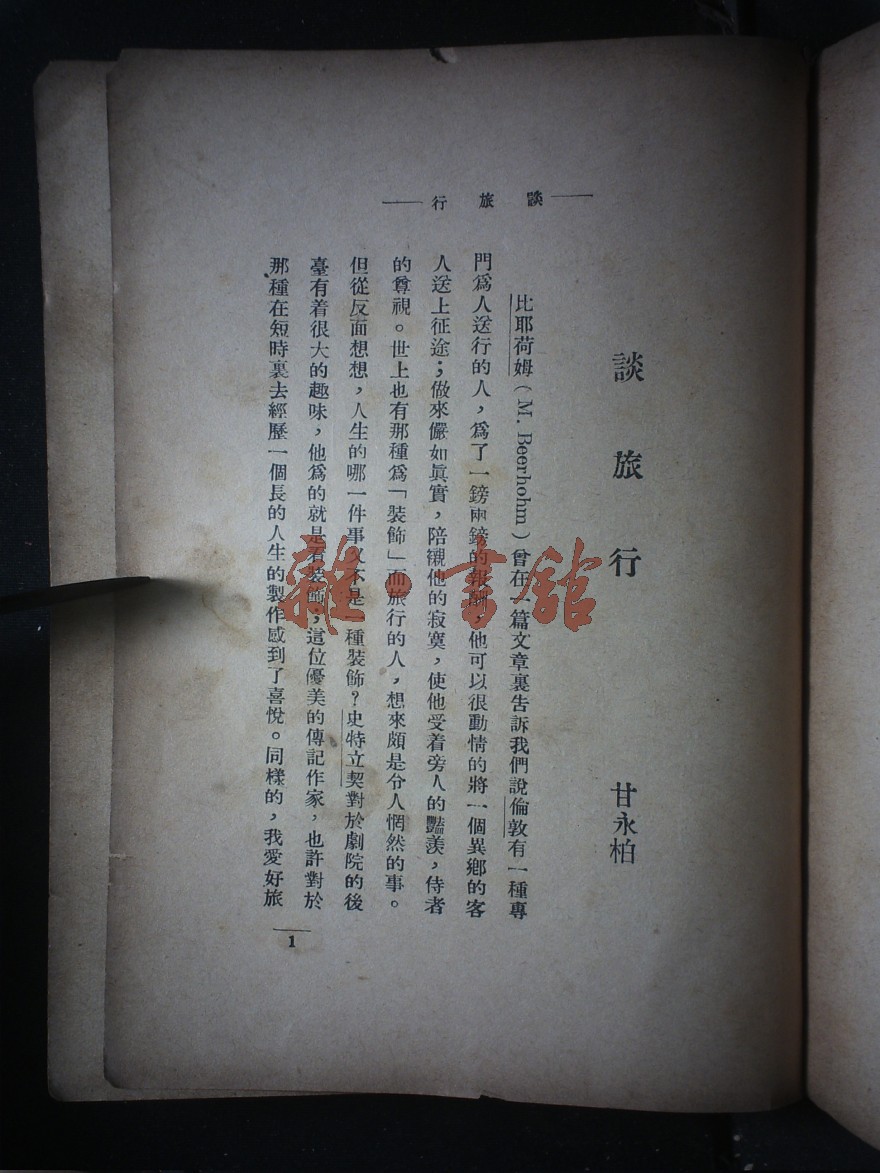 ——談旅行——
談旅行
甘永柏
比耶荷姆(M. Beerhohm)曾在一篇文章裏告訴我們說倫敦有一種專
門爲人送行的人，爲了一鎊兩鎊的報酬，他可以很動情的將一個異鄉的客
人送上征途；做來儼如眞實，陪襯他的寂寞，使他受着旁人的豔羨，侍者
的尊視。世上也有那種爲「裝飾」而旅行的人，想來頗是令人惘然的事。
但從反面想想，人生的哪一件事又不是一種裝飾？史特立契對於劇院的後
臺有着很大的趣味，他爲的就是看裝飾；這位優美的傳記作家，也許對於
那種在短時裏去經歷一個長的人生的製作感到了喜悅。同樣的，我愛好旅
1
雜·書館